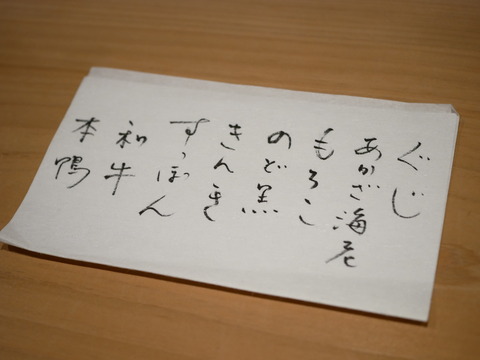 ぐじ
あかざ海老
もろこ
のど黒
きんき
すっぽん
和牛
本鴨